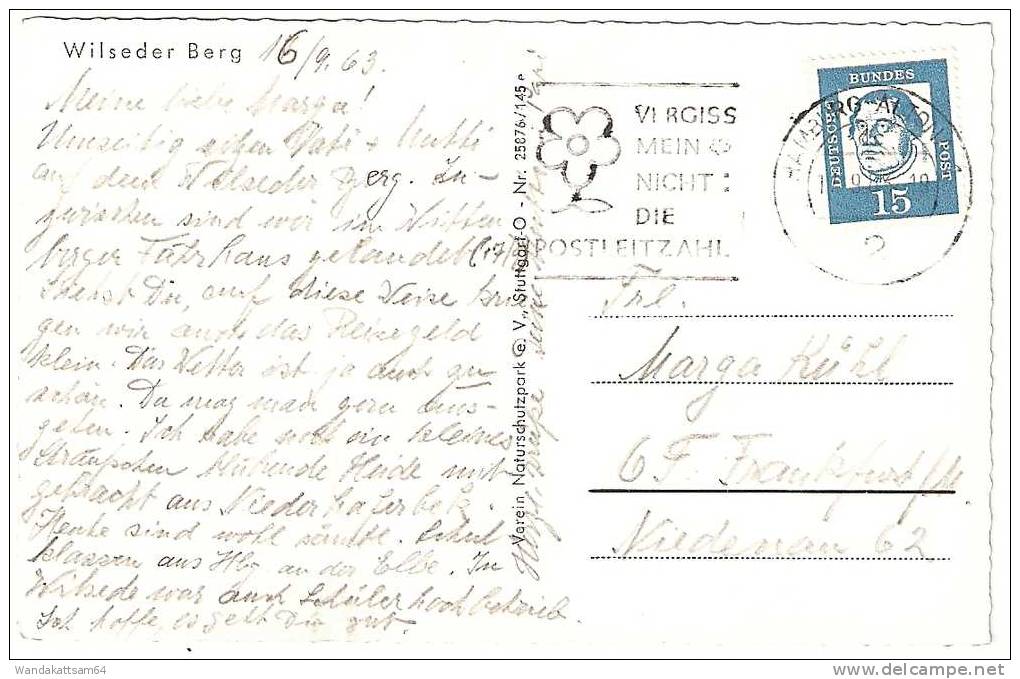 Wilseder Berg 16/9.63.
Meine liebe Marga!
Umseitig sehen Vati + Mutti
auf dem Wilseder Berg. In-
zwischen sind wir im Witten
berger Fährhaus gelandet (17/9)
Siehst Du, auf diese Weise krie
gen wir auch das Reisegeld
klein. Das Wetter ist ja auch zu
schön. Da mag man gern aus-
gehen. Ich habe noch ein kleines
Sträußchen blühende Heide mit
gebracht aus Niederhaverbek.
Heute sind wohl sämtl. Schul
klassen aus Hbg. an der Elbe. In
Wilsede war auch Schülerhochbetrieb.
Ich hoffe, es geht Dir gut.
Verein Naturschutzpark e. V., Stuttgart-O - Nr. 25876/145 e
VERGISS
MEIN
NICHT:
DIE
POSTLEITZAHL
HAMBURG-ALTONA
2
DEUTSCHE
BUNDES
POST
15
Frl.
Marga Kühl
6 F. Frankfurt/M.
Niedenau 62
Wandakattsam64
delcampe.net